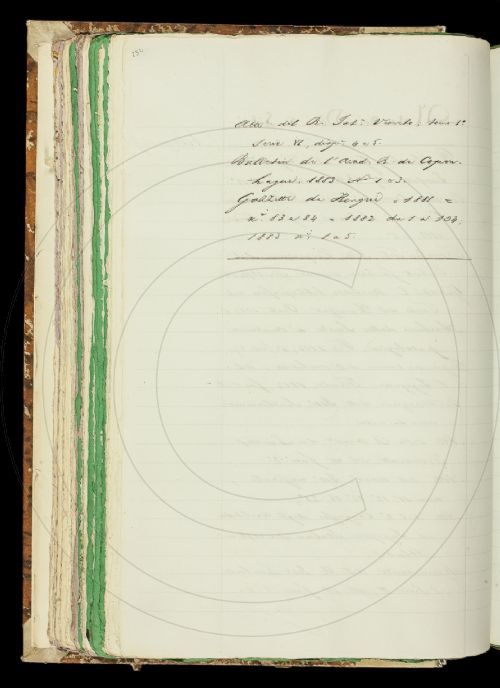 254
Atti del R. Ist. Veneto, tomo 1º
Serie VI, disp. 4 e 5.
Bulletin de l'Acad. R. de Copen-
hague, 1883 Nº 1 e 3.
Gazzette de Hongrie, 1881 =
nⁱ 13 a 84 = 1882 da 1 a 104,
1883 nⁱ 1 a 5.